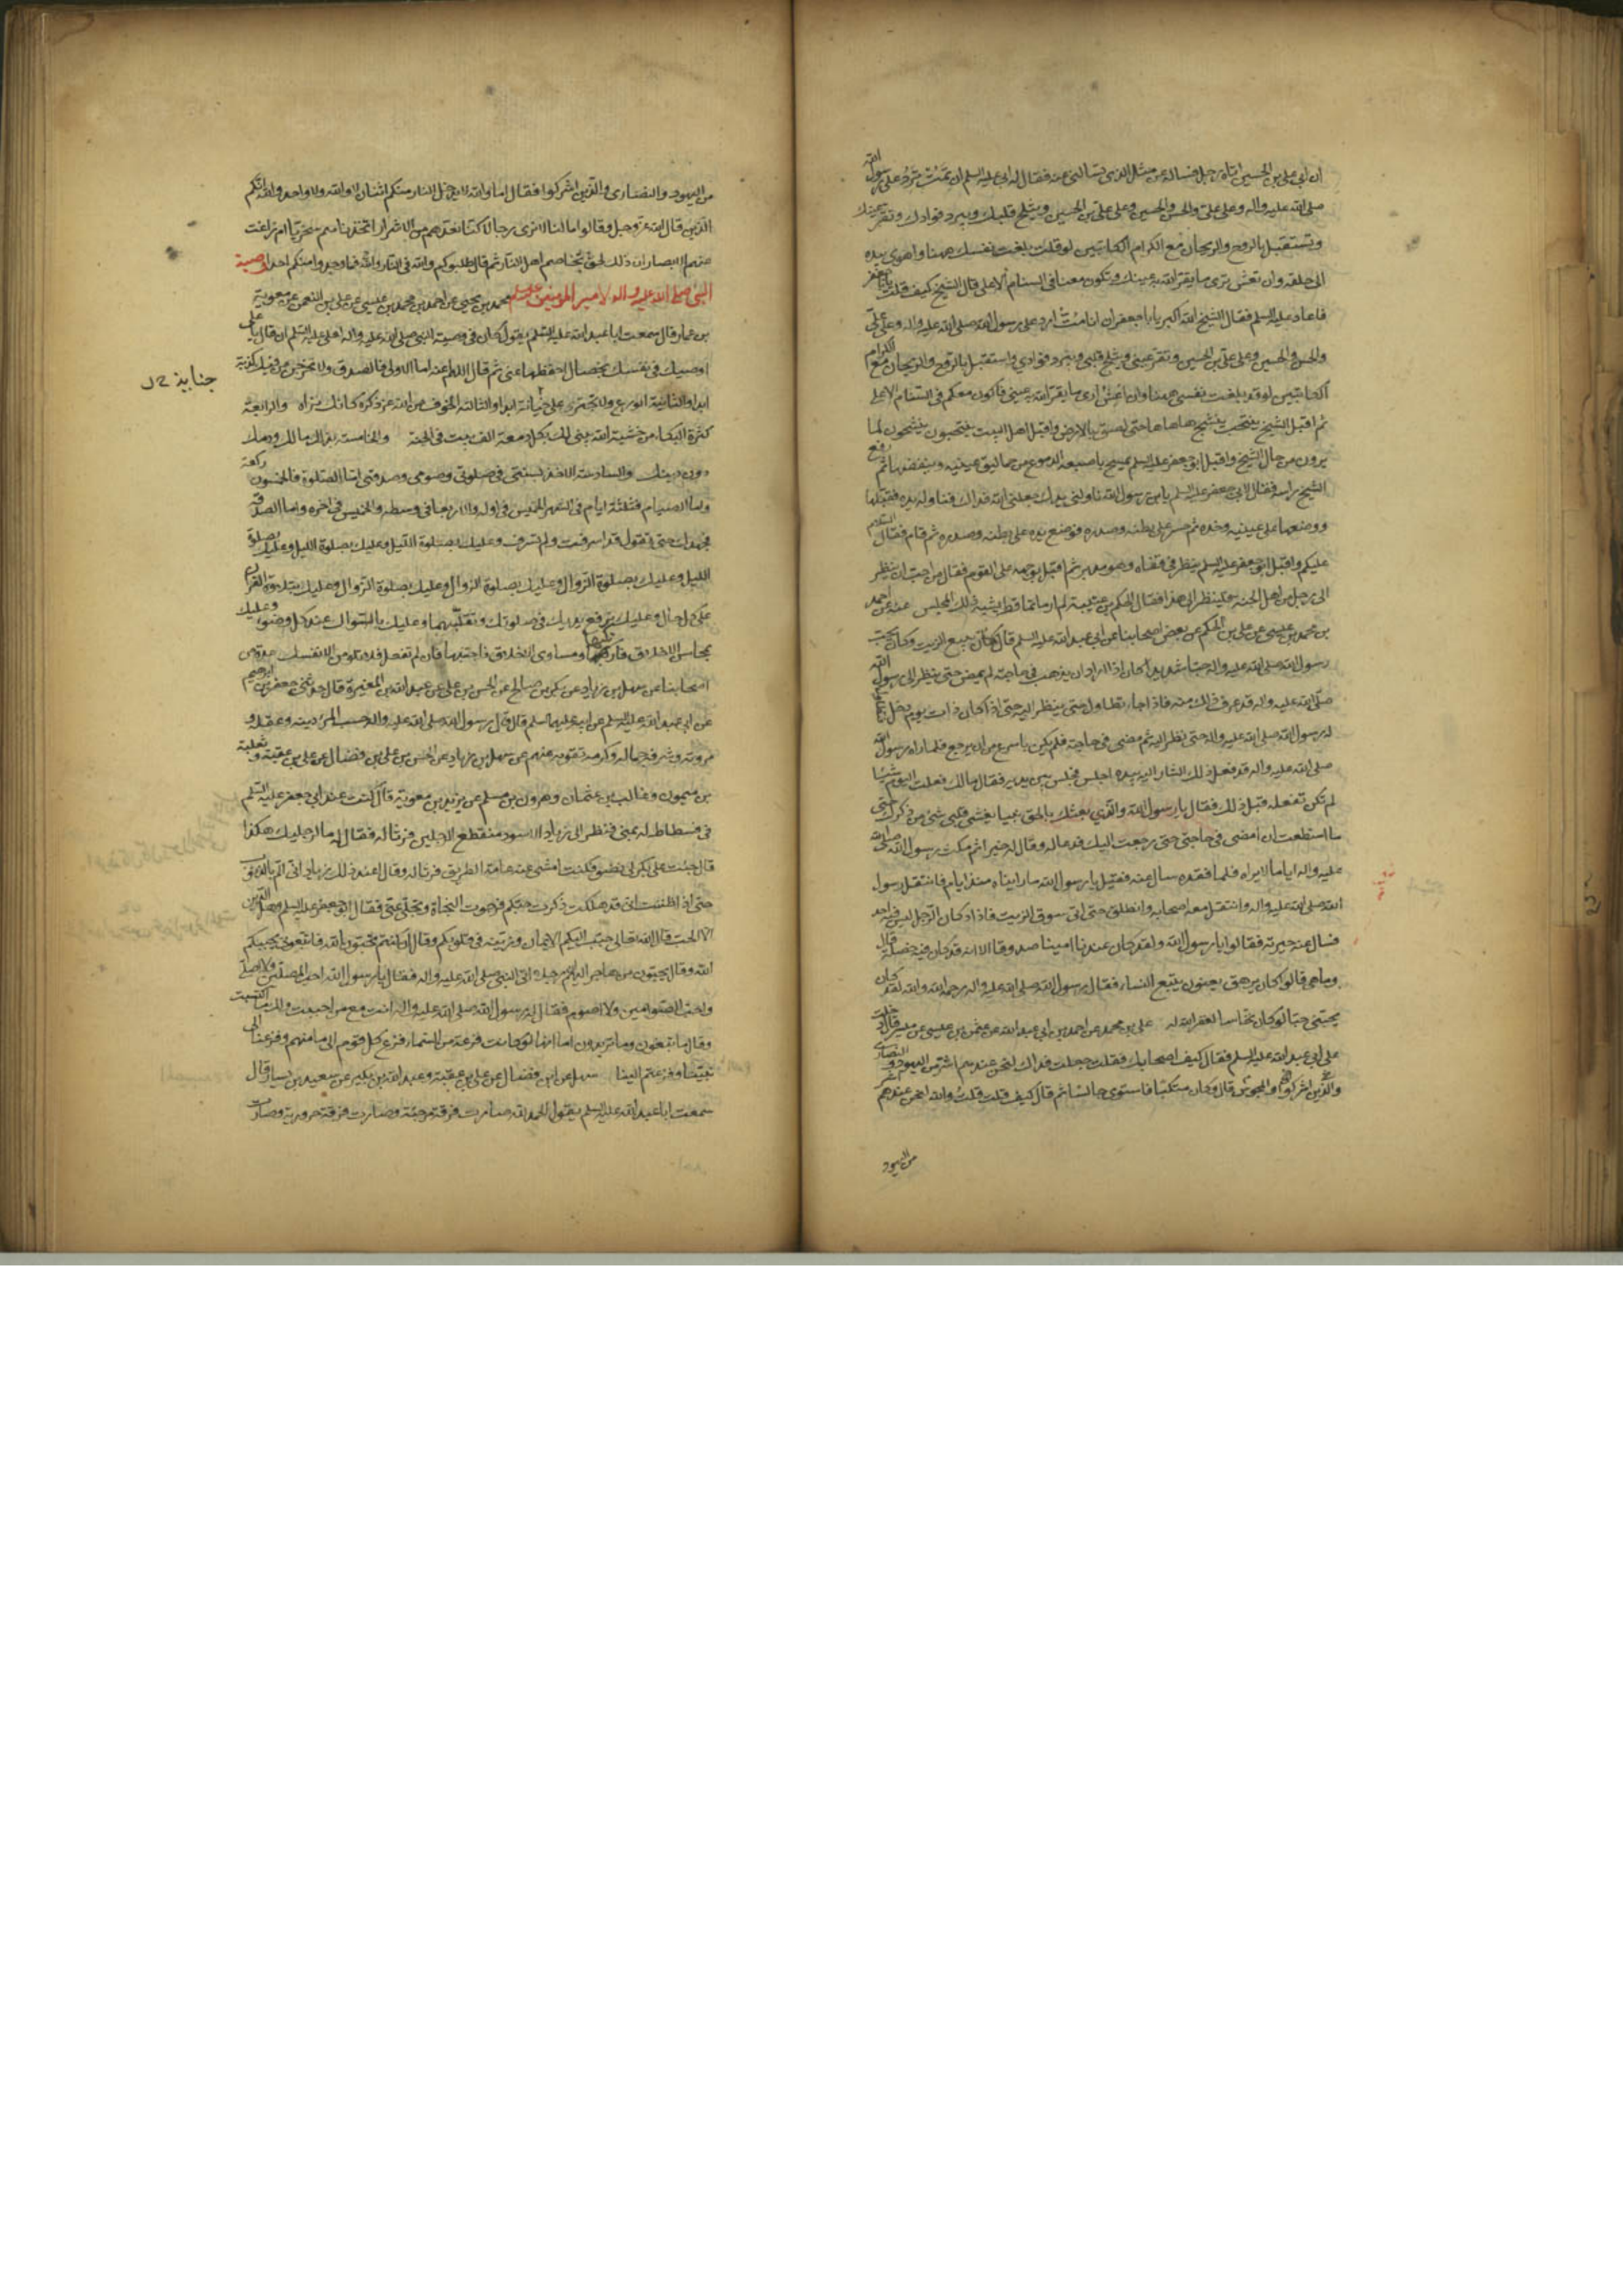 ان ابي علي بن الحسين اتاه رجل فساله عن مثل الذي تسالني عنه فقال له ابي عليه السلم ان تمت ترد على رسول الله
صلى الله عليه واله وعلى علي والحسن والحسين وعلى علي بن الحسين ويثلج قلبك ويبرد فوادك وتقر عينك
وتستقبل بالروح والريحان مع الكرام الكاتبين لو قد بلغت نفسك ههنا واهوى بيده
الى حلقه وان تعش ترى ما يقر الله به عينك وتكون معنا في السنام الاعلى قال الشيخ كيف قلت يا ابا جعفر
فاعاد عليه السلم فقال الشيخ الله اكبر يا ابا جعفر ان انا مت ارد على رسول الله صلى الله عليه واله وعلى علي
والحسن والحسين وعلى علي بن الحسين وتقر عيني ويثلج قلبي ويبرد فوادي واستقبل بالروح والريحان مع الكرام
الكاتبين لو قد بلغت نفسي ههنا وان اعش ارى ما يقر الله به عيني فاكون معكم في السنام الاعلى
ثم اقبل الشيخ ينتحب ينشج هاهاها حتى لصق بالارض واقبل اهل البيت ينتحبون ينشجون لما
يرون من حال الشيخ واقبل ابو جعفر عليه السلم يمسح باصبعه الدموع من حماليق عينيه وينفضها ثم رفع
الشيخ راسه فقال لابي جعفر عليه السلم يابن رسول الله ناولني يدك جعلني الله فداك فناوله يده فقبلها
ووضعها على عينيه وخده ثم حسر عن بطنه وصدره فوضع يده على بطنه وصدره ثم قام فقال السلام
عليكم واقبل ابو جعفر عليه السلم ينظر في قفاه وهو مدبر ثم اقبل بوجهه على القوم فقال من احب ان ينظر
الى رجل من اهل الجنة فلينظر الى هذا فقال الحكم بن عتيبة لم ار ماتما قط يشبه ذلك المجلس عنه عن احمد
بن محمد بن عيسى عن علي بن الحكم عن بعض اصحابنا عن ابي عبد الله عليه السلم قال كان رجل يبيع الزيت وكان يحب
رسول الله صلى الله عليه واله حبا شديدا كان اذا اراد ان يذهب في حاجته لم يمض حتى ينظر الى رسول الله
صلى الله عليه واله قد عرف ذلك منه فاذا جاء تطاول حتى ينظر اليه حتى اذا كان ذات يوم دخل فتطاول
له رسول الله صلى الله عليه واله حتى نظر اليه ثم مضى في حاجته فلم يكن باسرع من ان رجع فلما راه رسول الله
صلى الله عليه واله قد فعل ذلك اشار اليه بيده اجلس فجلس بين يديه فقال مالك فعلت اليوم شيئا
لم تكن تفعله قبل ذلك فقال يا رسول الله والذي بعثك بالحق نبيا لغشي قلبي شيء من ذكرك حتى
ما استطعت ان امضي في حاجتي حتى رجعت اليك فدعا له وقال له خيرا ثم مكث رسول الله صلى الله
عليه واله اياما لا يراه فلما فقده سال عنه فقيل يا رسول الله ما رايناه منذ ايام فانتعل رسول
الله صلى الله عليه واله وانتعل معه اصحابه وانطلق حتى اتى سوق الزيت فاذا دكان الرجل ليس فيه احد
فسال عنه جيرته فقالوا يا رسول الله ولقد كان عندنا امينا صدوقا الا انه قد كان فيه خصلة قال
وما هي قالوا كان يرهق يعنون يتبع النساء فقال رسول الله صلى الله عليه واله رحمه الله والله لقد كان
يحبني حبا لو كان نخاسا لغفر الله له علي بن محمد عن احمد بن ابي عبد الله عن عثمن بن عيسى عن ميسر قال دخلت
على ابي عبد الله عليه السلم فقال كيف اصحابك فقلت جعلت فداك لنحن عندهم اشر من اليهود والنصارى
والذين اشركوا والمجوس قال وكان متكئا فاستوى جالسا ثم قال كيف قلت قلت والله لنحن عندهم اشر
من اليهود
من اليهود والنصارى والذين اشركوا فقال اما والله لا يدخل النار منكم اثنان لا والله ولا واحد والله انكم
الذين قال الله عز وجل وقالوا ما لنا لا نرى رجالا كنا نعدهم من الاشرار اتخذناهم سخريا ام زاغت
عنهم الابصار ان ذلك لحق تخاصم اهل النار ثم قال طلبوكم والله في النار والله فما وجدوا منكم احدا وصية
النبي صلى الله عليه واله لامير المومنين عليه السلم محمد بن يحيى عن احمد بن محمد بن عيسى عن علي بن النعمن عن معوية
بن عمار قال سمعت ابا عبد الله عليه السلم يقول كان في وصية النبي صلى الله عليه واله لعلي عليه السلم ان قال يا علي
اوصيك في نفسك بخصال احفظها عني ثم قال اللهم اعنه اما الاولى فالصدق ولا تخرجن من فيك كذبة
جنابذ
ابدا والثانية الورع ولا تجترئ على خيانة ابدا والثالثة الخوف من الله عز ذكره كانك تراه والرابعة
كثرة البكاء من خشية الله يبنى لك بكل دمعة الف بيت في الجنة والخامسة بذلك مالك ودمك
دون دينك والسادسة الاخذ بسنتي في صلوتي وصومي وصدقتي اما الصلوة فالخمسون ركعة
واما الصيام فثلثة ايام في الشهر الخميس في اوله والاربعا في وسطه والخميس في اخره واما الصدقة
فجهدك حتى تقول قد اسرفت ولم تسرف وعليك بصلوة الليل وعليك بصلوة الليل وعليك بصلوة
الليل وعليك بصلوة الزوال وعليك بصلوة الزوال وعليك بصلوة الزوال وعليك بتلاوة القران
على كل حال وعليك برفع يديك في صلوتك وتقليبهما وعليك بالسواك عند كل وضوء وعليك
بمحاسن الاخلاق فاركبها ومساوي الاخلاق فاجتنبها فان لم تفعل فلا تلومن الا نفسك عدة من
اصحابنا عن سهل بن زياد عن بكر بن صالح عن الحسن بن علي عن عبد الله بن المغيرة قال حدثني جعفر بن ابرهيم
عن ابي عبد الله عليه السلم عن ابيه عليهما السلم قال قال رسول الله صلى الله عليه واله حسب المرء دينه وعقله و
مروته وشرفه جماله وكرمه تقويه عنهم عن سهل بن زياد عن الحسن بن علي بن فضال عن علي بن عقبة وثعلبة
بن ميمون وغالب بن عثمان وهرون بن مسلم عن بريد بن معوية قال كنت عند ابي جعفر عليه السلم
في فسطاط له بمنى فنظر الى زياد الاسود منقطع الرجلين فرثا له فقال له ما لرجليك هكذا
قال جئت على بكر لي نضو فكنت امشي عنه عامة الطريق فرثا له وقال عند ذلك زياد اني الم بالذنوب
حتى اذا ظننت اني قد هلكت ذكرت حبكم فرجوت النجاة وتجلى عني فقال ابو جعفر عليه السلم وهل الدين
الا الحب قال الله تعالى حبب اليكم الايمان وزينه في قلوبكم وقال ان كنتم تحبون الله فاتبعوني يحببكم
الله وقال يحبون من هاجر اليهم رجل اتى النبي صلى الله عليه واله فقال يا رسول الله احب المصلين ولا اصلي
واحب الصوامين ولا اصوم فقال له رسول الله صلى الله عليه واله انت مع من احببت ولك ما اكتسبت
وقال ما تبغون وما تريدون اما انها لو كانت فزعة من السماء فزع كل قوم الى مامنهم وفزعنا الى
نبينا وفزعتم الينا سهل عن ابن فضال عن علي بن عقبة وعبد الله بن بكير عن سعيد بن يسار قال
سمعت ابا عبد الله عليه السلم يقول الحمد لله صارت فرقة مرجئة وصارت فرقة حرورية وصارت